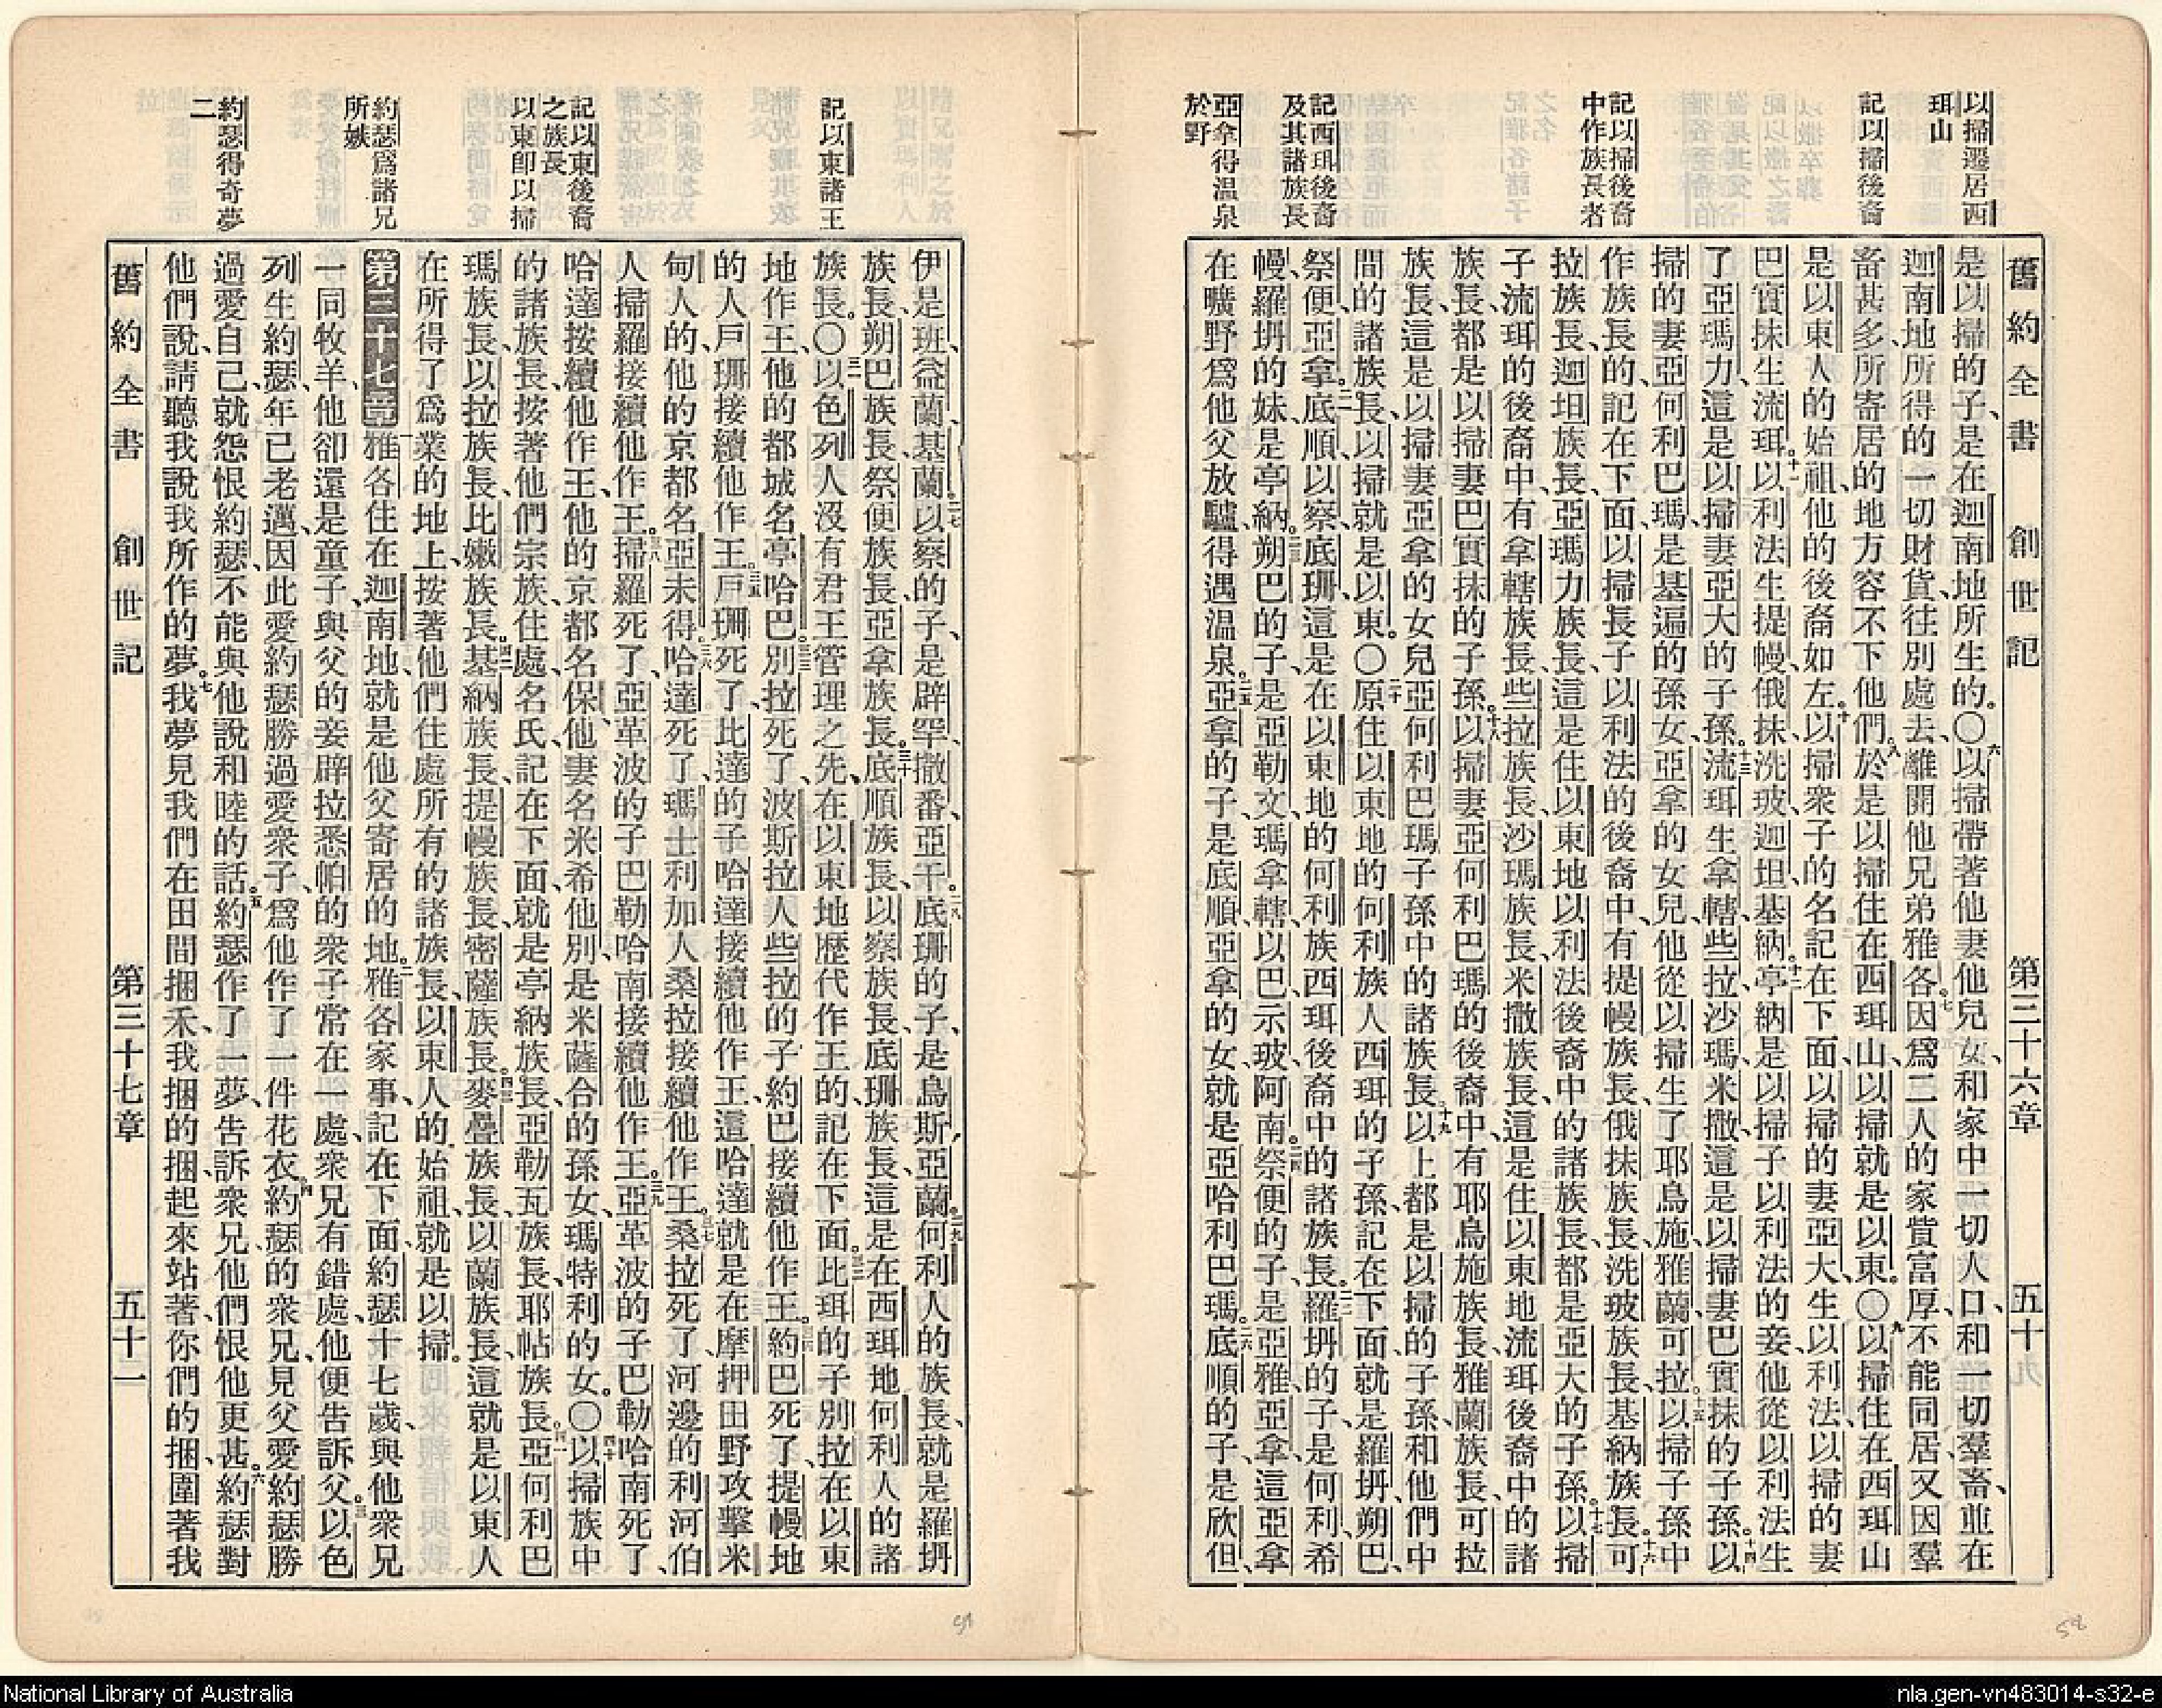 以掃遷居西
珥山
記以掃後裔
記以掃後裔
中作族長者
記西珥後裔
及其諸族長
亞拿得温泉
於野
舊約全書 創世記 第三十六章 五十
是以掃的子、是在迦南地所生的。〇六以掃帶著他妻他兒女、和家中一切人口、和一切羣畜、並在
迦南地所得的一切財貨、往別處去、離開他兄弟雅各。七因爲二人的家貲富厚、不能同居、又因羣
畜甚多、所寄居的地方容不下他們。八於是以掃住在西珥山、以掃就是以東。〇九以掃住在西珥山
是以東人的始祖、他的後裔如左。十以掃衆子的名記在下面、以掃的妻亞大生以利法、以掃的妻
巴實抹生流珥。十一以利法生提幔、俄抹、洗玻、迦坦、基納。十二亭納是以掃子以利法的妾、他從以利法生
了亞瑪力、這是以掃妻亞大的子孫。十三流珥生拿轄、些拉、沙瑪、米撒、這是以掃妻巴實抹的子孫。十四以
掃的妻亞何利巴瑪、是基遍的孫女、亞拿的女兒、他從以掃生了耶烏施、雅蘭、可拉。十五以掃子孫中
作族長的、記在下面、以掃長子以利法的後裔中、有提幔族長、俄抹族長、洗玻族長、基納族長、十六可
拉族長、迦坦族長、亞瑪力族長、這是住以東地以利法後裔中的諸族長、都是亞大的子孫。十七以掃
子流珥的後裔中、有拿轄族長、些拉族長、沙瑪族長、米撒族長、這是住以東地流珥後裔中的諸
族長、都是以掃妻巴實抹的子孫。十八以掃妻亞何利巴瑪的後裔中、有耶烏施族長、雅蘭族長、可拉
族長、這是以掃妻亞拿的女兒亞何利巴瑪子孫中的諸族長。十九以上都是以掃的子孫、和他們中
間的諸族長、以掃就是以東。〇二十原住以東地的何利族人西珥的子孫、記在下面、就是羅坍、朔巴、
祭便、亞拿、二一底順、以察、底珊、這是在以東地的何利族西珥後裔中的諸族長。二二羅坍的子、是何利、希
幔、羅坍的妹是亭納。二三朔巴的子、是亞勒文、瑪拿轄、以巴、示玻、阿南。二四祭便的子、是亞雅、亞拿、這亞拿
在曠野爲他父放驢、得遇温泉。二五亞拿的子是底順、亞拿的女就是亞哈利巴瑪。二六底順的子是欣但、
58
記以東諸王
記以東後裔
之族長
以東卽以掃
約瑟爲諸兄
所嫉
約瑟得奇夢
二
伊是班、益蘭、基蘭。二七以察的子、是辟罕、撒番、亞干。二八底珊的子、是烏斯、亞蘭。二九何利人的族長、就是羅坍
族長、朔巴族長、祭便族長、亞拿族長、三十底順族長、以察族長、底珊族長、這是在西珥地何利人的諸
族長。〇三一以色列人沒有君王管理之先、在以東地歷代作王的、記在下面。三二比珥的子別拉、在以東
地作王、他的都城名亭哈巴。三三別拉死了、波斯拉人些拉的子約巴接續他作王。三四約巴死了、提幔地
的人戶珊接續他作王。三五戶珊死了、比達的子哈達接續他作王、這哈達就是在摩押田野攻擊米
甸人的、他的京都名亞未得。三六哈達死了、瑪士利加人桑拉接續他作王。三七桑拉死了、河邊的利河伯
人掃羅接續他作王。三八掃羅死了、亞革波的子巴勒哈南接續他作王。三九亞革波的子巴勒哈南死了、
哈達按續他作王、他的京都名保、他妻名米希他別、是米薩合的孫女、瑪特利的女。〇四十以掃族中
的諸族長、按著他們宗族、住處、名氏、記在下面、就是亭納族長、亞勒瓦族長、耶帖族長、四一亞何利巴
瑪族長、以拉族長、比嫩族長、四二基納族長、提幔族長、密薩族長、四三麥疊族長、以蘭族長、這就是以東人
在所得了爲業的地上、按著他們住處所有的諸族長、以東人的始祖、就是以掃。
第三十七章 一雅各住在迦南地、就是他父寄居的地。二雅各家事記在下面、約瑟十七歲、與他衆兄
一同牧羊、他卻還是童子、與父的妾辟拉悉帕的衆子常在一處、衆兄有錯處、他便告訴父。三以色
列生約瑟、年已老邁、因此愛約瑟勝過愛衆子、爲他作了一件花衣。四約瑟的衆兄、見父愛約瑟勝
過愛自己、就怨恨約瑟、不能與他說和睦的話。五約瑟作了一夢、告訴衆兄、他們恨他更甚。六約瑟對
他們說、請聽我說我所作的夢。七我夢見我們在田間捆禾、我捆的捆、起來站著、你們的捆、圍著我
舊約全書 創世記 第三十七章 五十一
51
National Library of Australia
nla.gen-vn483014-s32-e